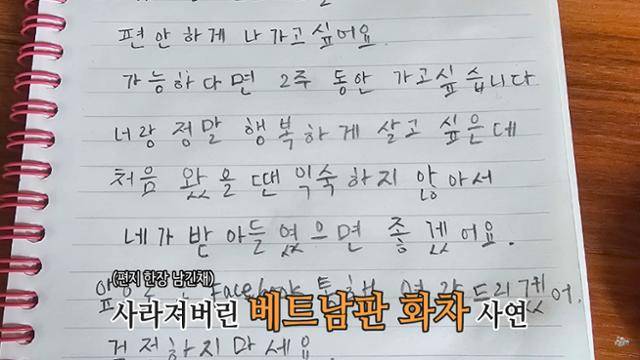 편안하게 나가고싶어요.
가능하다면 2주 동안 가고싶습니다
너랑 정말 행복하게 살고 싶은데
처음 왔을 땐 익숙하지 않아서
네가 받아들였으면 좋겠어요.
(편지 한장 남긴채)
Facebook 통해
사라져버린 베트남판 화차 사연
걱정하지마세요.